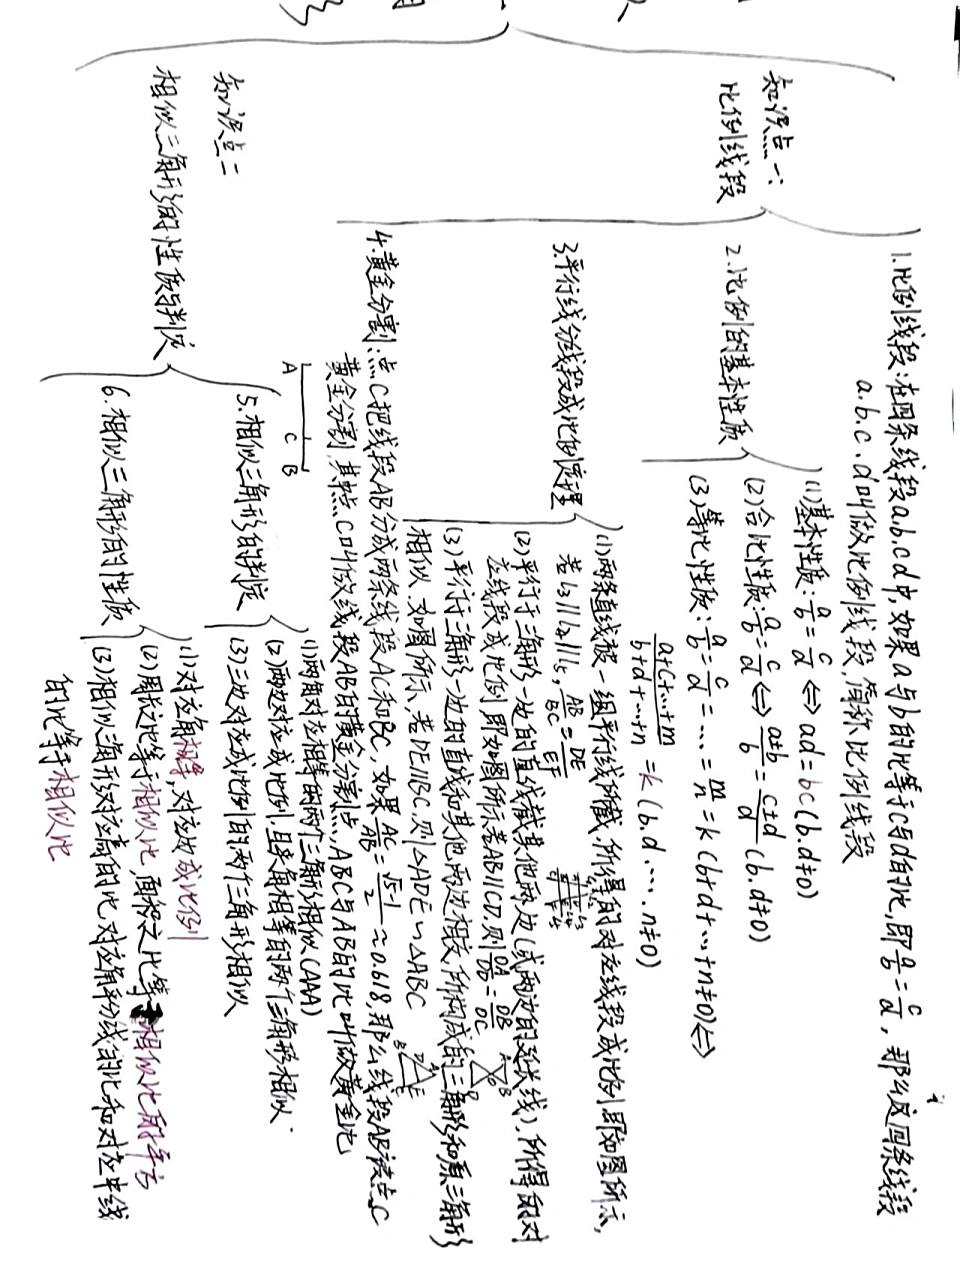 知识点一:
比例线段
1.比例线段:在四条线段a.b.c.d中,如果a与b的比等于c与d的比,即a/b=c/d,那么这四条线段
a.b.c.d叫做比例线段,简称比例线段
2.比例的基本性质
(1)基本性质:a/b=c/d⇔ad=bc(b.d≠0)
(2)合比性质:a/b=c/d⇔a±b/b=c±d/d(b.d≠0)
(3)等比性质:a/b=c/d=…=m/n=k(b+d+…+n≠0)⇔
a+c+…+m/b+d+…+n=k(b.d.…n≠0)
3.平行线分线段成比例定理
(1)两条直线被一组平行线所截,所得的对应线段成比例即如图所示,
若l3∥l4∥l5,AB/BC=DE/EF
(2)平行于三角形一边的直线截其他两边(或两边的延长线),所得的对
应线段成比例即如图所示若AB∥CD,则OA/OD=OB/OC
A B
(3)平行于三角形一边的直线和其他两边相交,所构成的三角形和原三角形
相似.如图所示.若DE∥BC,则△ADE∽△ABC
4.黄金分割:点C把线段AB分成两条线段AC和BC,如果AC/AB=√5-1/2≈0.618,那么线段AB被点C
黄金分割,其中点C叫做线段AB的黄金分割点,ABC与AB的比叫做黄金比
A C B
知识点二
相似三角形的性质与判定
5.相似三角形的判定
(1)两角对应相等的两个三角形相似(AAA)
(2)两边对应成比例,且夹角相等的两个三角形相似.
(3)三边对应成比例的两个三角形相似
6.相似三角形的性质
(1)对应角相等,对应边成比例
(2)周长之比等于相似比,面积之比等于相似比的平方
(3)相似三角形对应高的比,对应角平分线的比和对应中线
的比等于相似比